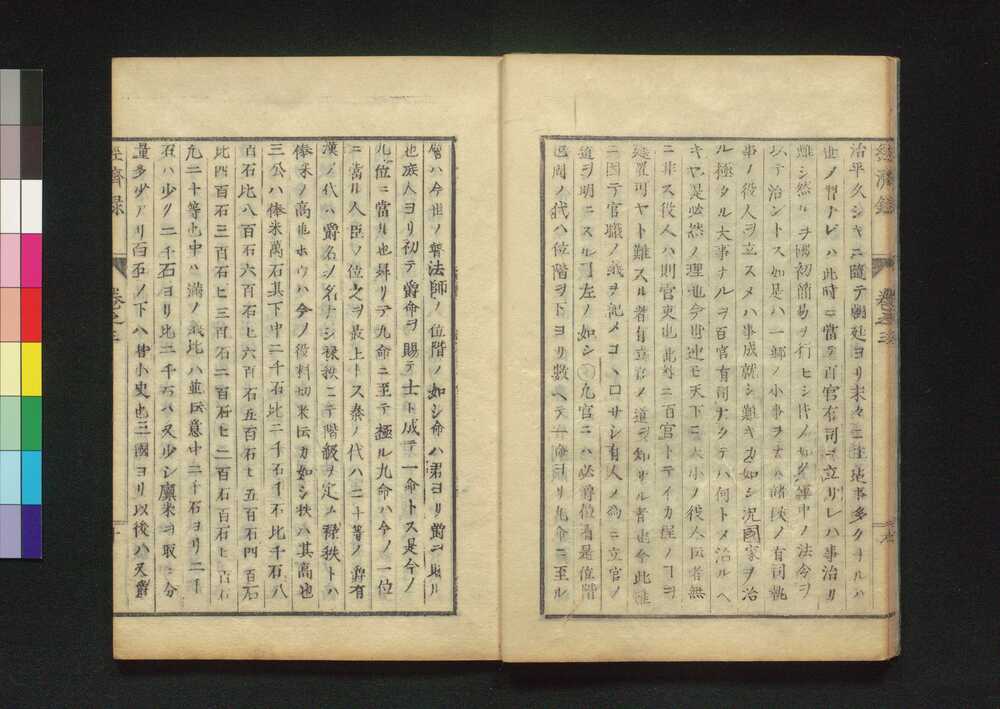 經濟録
卷之三
治平久シキニ隨テ朝廷ヨリ末々ニ至迄事多クナルハ
世ノ習ナレバ此時ニ當テ百官有司ヲ立サレハ事治リ
難シ然ルヲ國初簡易ヲ行ヒシ時ノ如ク軍中ノ法令ヲ
以テ治ントス如是ハ一郷ノ小事ヲ
事ノ役人ヲ立スメハ事成就シ難キカ如シ況國家ヲ治
ル極タル大事ナルヲ百官有司ナクテハ何トメ治ルヘ
キヤ是必然ノ理也今世迚モ天下ニ大小ノ役人
ニ非ス役人ハ則官吏也此外ニ百官トテイカ程ノ
建置可ヤト難スル者有立官ノ道ヲ知サル者也今此
ニ因テ官職ノ義ヲ記メコヽロサシ有人ノ爲ニ立官ノ
道ヲ明ニスル左ノ如シ○九官ニハ必尊位有是位階
也周ノ代ハ位階ヲ下ヨリ數ヘテ一命ヨリ九命ニ至ル
層ハ今世ノ瞽法師ノ位階ノ如シ命ハ君ヨリ爵ニ
也庶人ヨリ初テ爵命ヲ賜テ士ト成テ一命トス是今ノ
九位ニ當ル也昇リテ九命ニ至テ極ル九命ハ今ノ一位
ニ當ル人臣ノ位之ヲ最上トス秦ノ代ハ二十等ノ爵有
漢ノ代ハ爵名ノ名ナシ禄秩ニテ階級ヲ定ム禄秩トハ
俸米ノ高也ホウハ今ノ役料切米伝カ如シ秩ハ其高也
三公ハ俸米萬石其下中二千石比二千石千石比千石八
百石比八百石六百石比六百石五百石比五百石四百石
比四百石三百石比三百石二百石比二百石百石比百石
九二十等也中ハ滿ノ義比ハ並伝意中二千石ヨリ二千
石ハ少ク二千石ヨリ比二千石ハ又少シ廩米ヲ取ニ分
量多少アリ百石ノ下ハ皆小吏也三國ヨリ以後ハ又爵
經濟録
卷之三